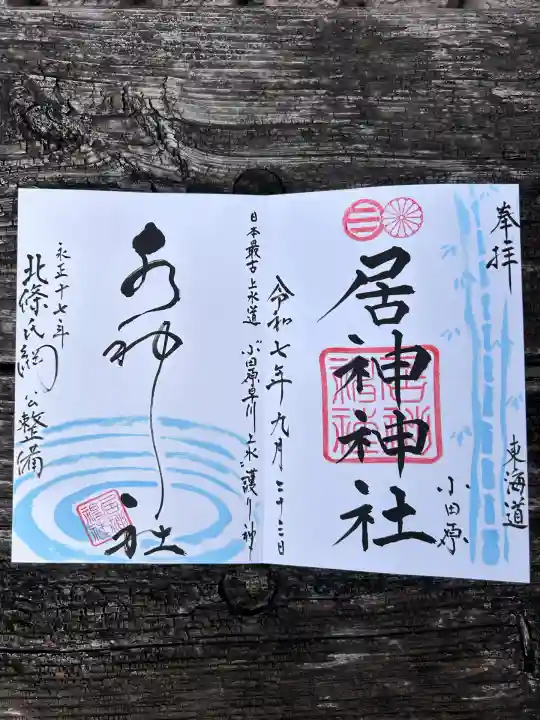 奉拝
東海道
小田原
居神神社
令和七年九月二十三日
日本最古上水道 小田原早川上水護り神
水神社
永正十七年
北條氏綱公整備